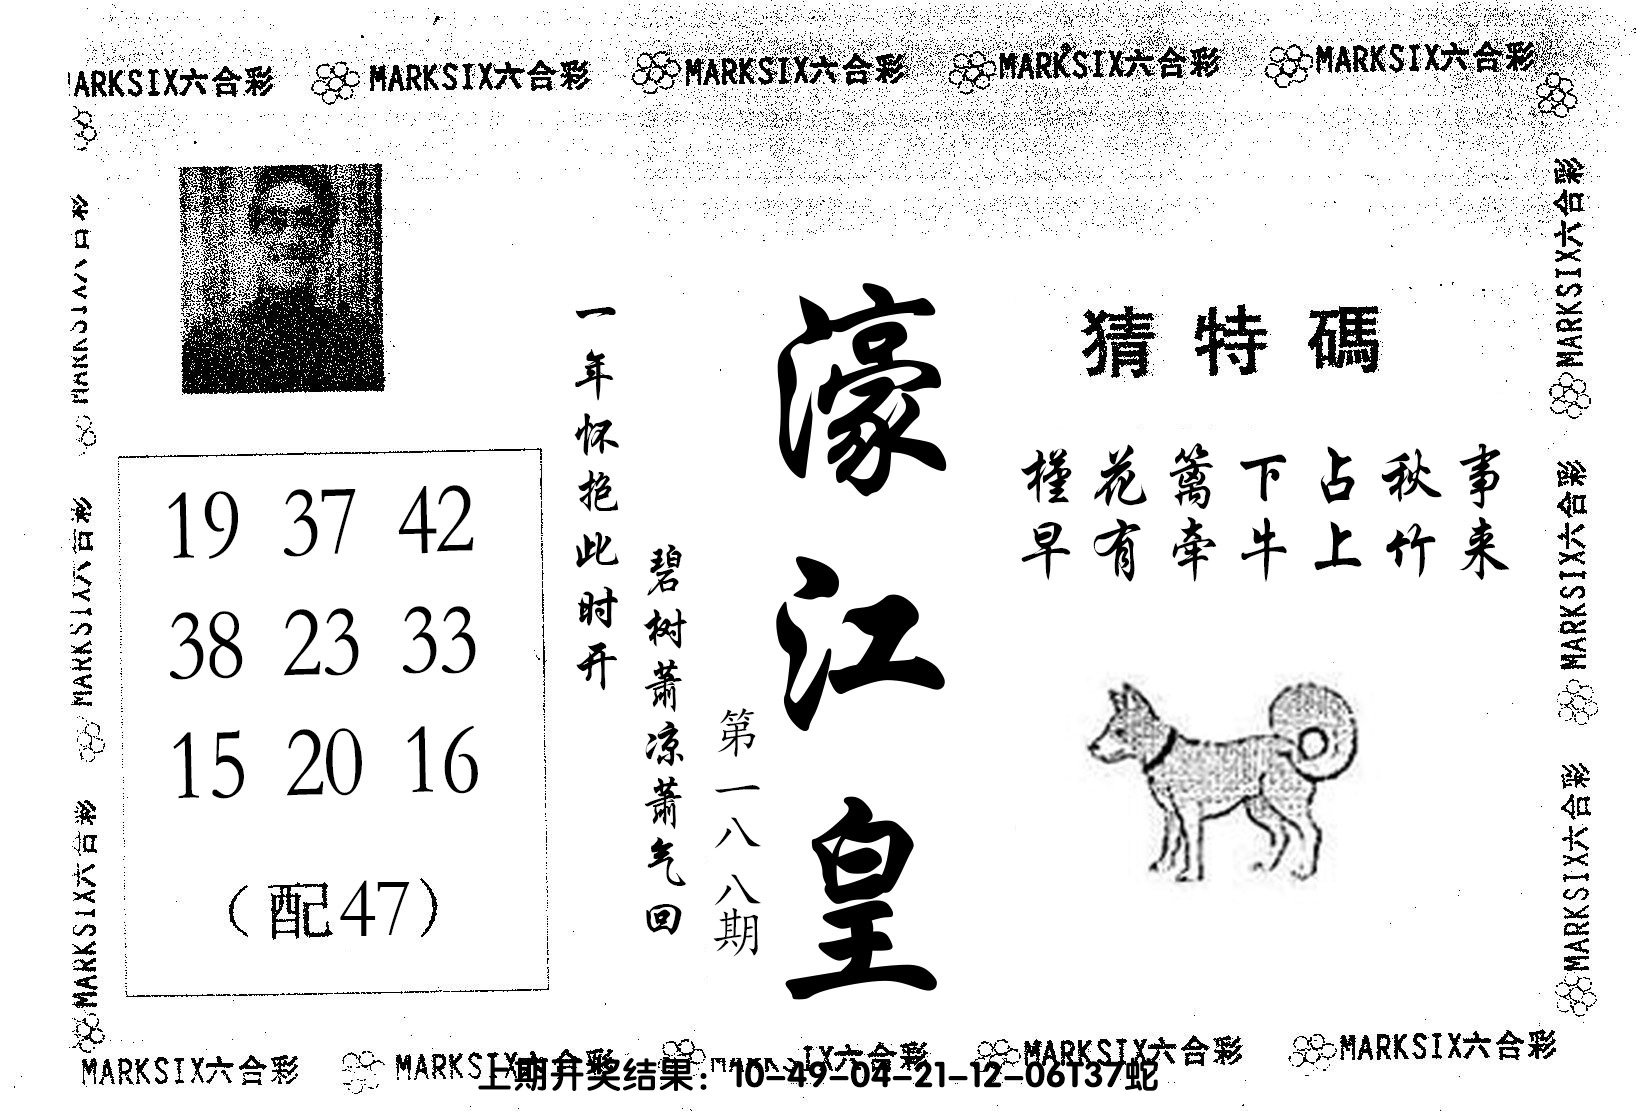 MARKSIX六合彩 MARKSIX六合彩 MARKSIX六合彩 MARKSIX六合彩
猜特碼
槿花篱下占秋事
早有牵牛上竹来
濠江皇
第一八八期
碧树萧凉萧气回
一年怀抱此时开
19 37 42
38 23 33
15 20 16
（配47）
MARKSIX六合彩
MARKSIX六合彩
MARKSIX六合彩
MARKSIX六合彩
MARKSIX六合彩
MARKSIX六合彩 MARKSIX六合彩 MARKSIX六合彩 MARKSIX六合彩
上期开奖结果：10-49-04-21-12-06T37蛇